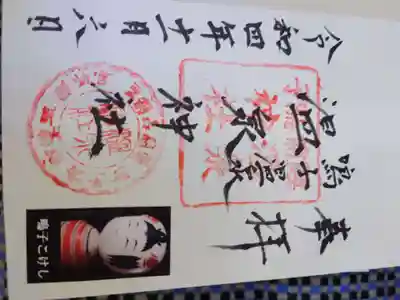 奉拝
鳴子
温泉
神社
令和四年十一月六日
鳴子こけし